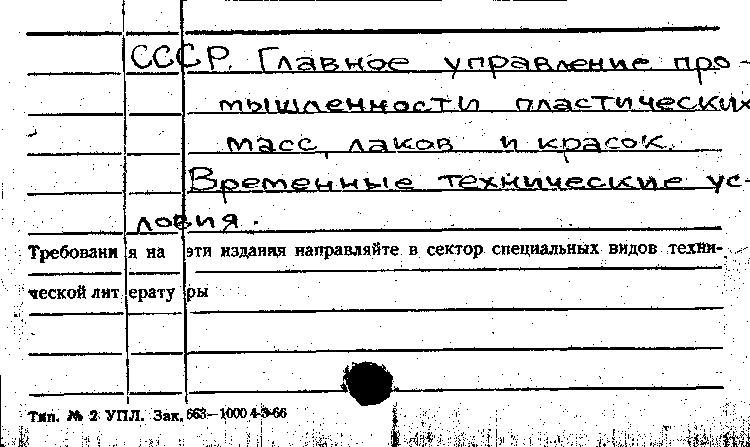 СССР. Главное управление про-
мышленности пластических
масс, лаков и красок.
Временные технические ус-
ловия.
Требования на эти издания направляйте в сектор специальных видов техни-
ческой литературы
Тип. № 2 УПЛ. Зак. 663—1000 4-3-66